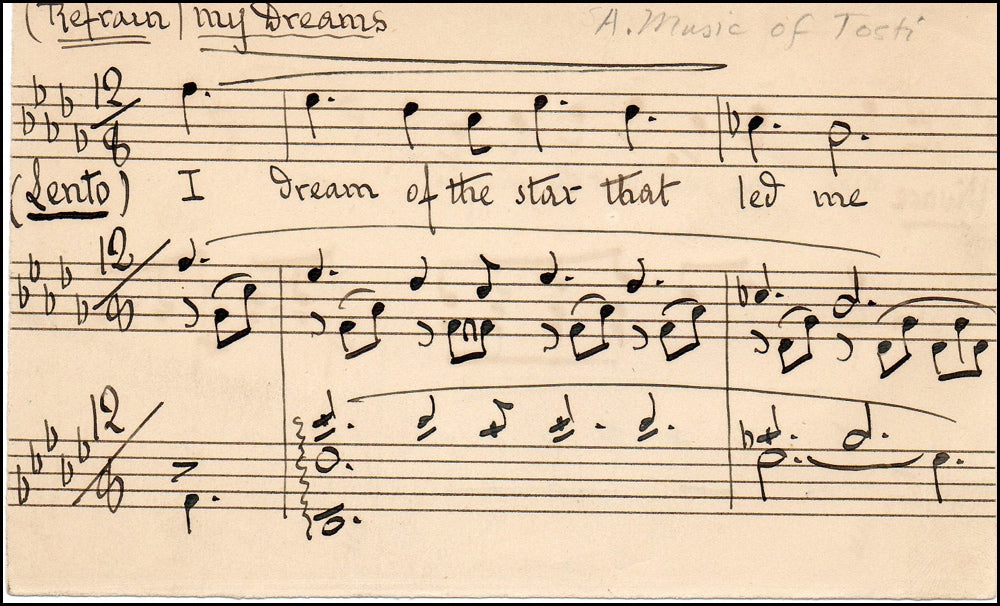 (Refrain) my Dreams
A. Music of Tosti
12
8
(Lento) I dream of the star that led me
12
8
12
8